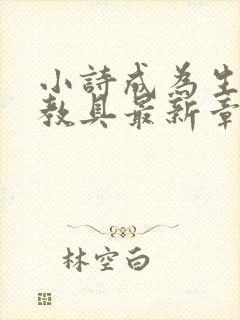 小詩成為生
教具最新章
林空白